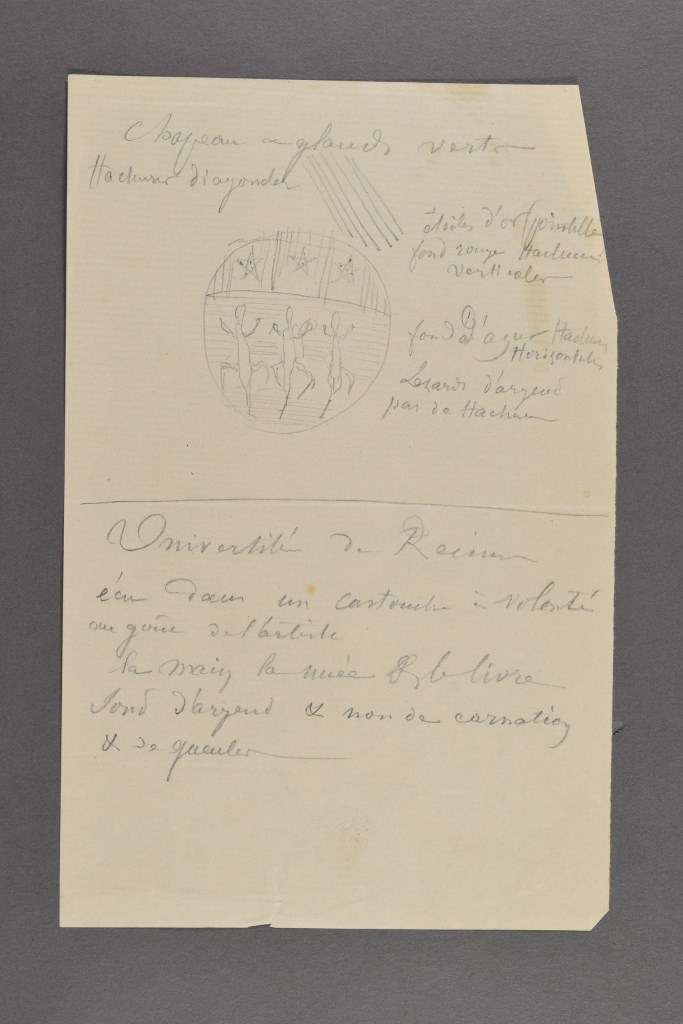 Chapeau & glands verts
Hachures diagonales
étoiles d'or pointillé
fond rouge Hachures
verticales
fond D'azur Hachures
Horizontales
Lezards d'argend
pas de Hachures
Université de Reims
écu dans un cartouche à volonté
au goût de l'artiste
la main la nuée & le livre
sond d'argend & non de carnation
& de gueules